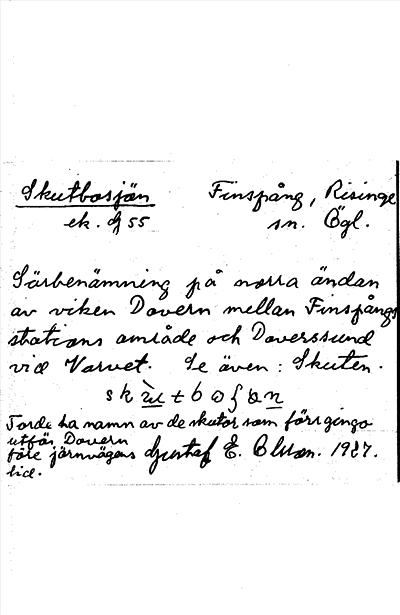 Skutbosjön Finspång, Risinge
ek. 9J 55 sn. Ögl.
Särbenämning på norra ändan
av viken Dovern mellan Finspångs
stations område och Doverssund
vid Varvet. Se även: Skuten.
Torde ha namn av de skutor som förr gingo
utför Dovern
före järnvägens Gustaf E. Olsson. 1927.
tid.